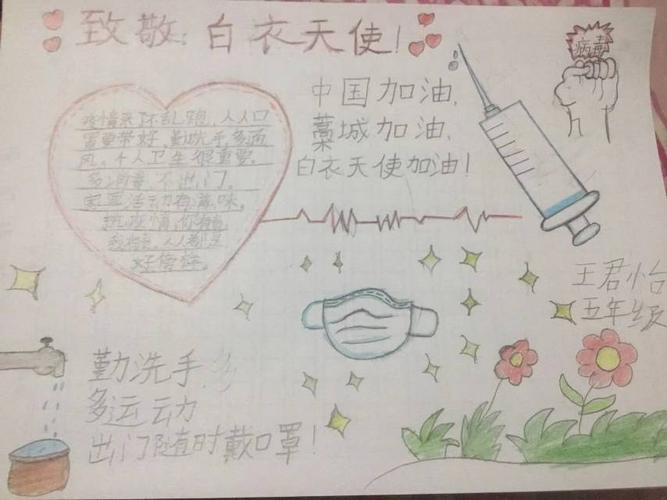 致敬:白衣天使!
病毒
中国加油,
藁城加油,
白衣天使加油!
疫情来了不乱跑,人人口
罩要带好,勤洗手,多通
风,个人卫生很重要,
多消毒,不出门,
家里活动有滋味,
抗疫情,你有我
我有你,人人都是
好榜样。
王君怡
五年级
勤洗手多
多运动
出门随时戴口罩!